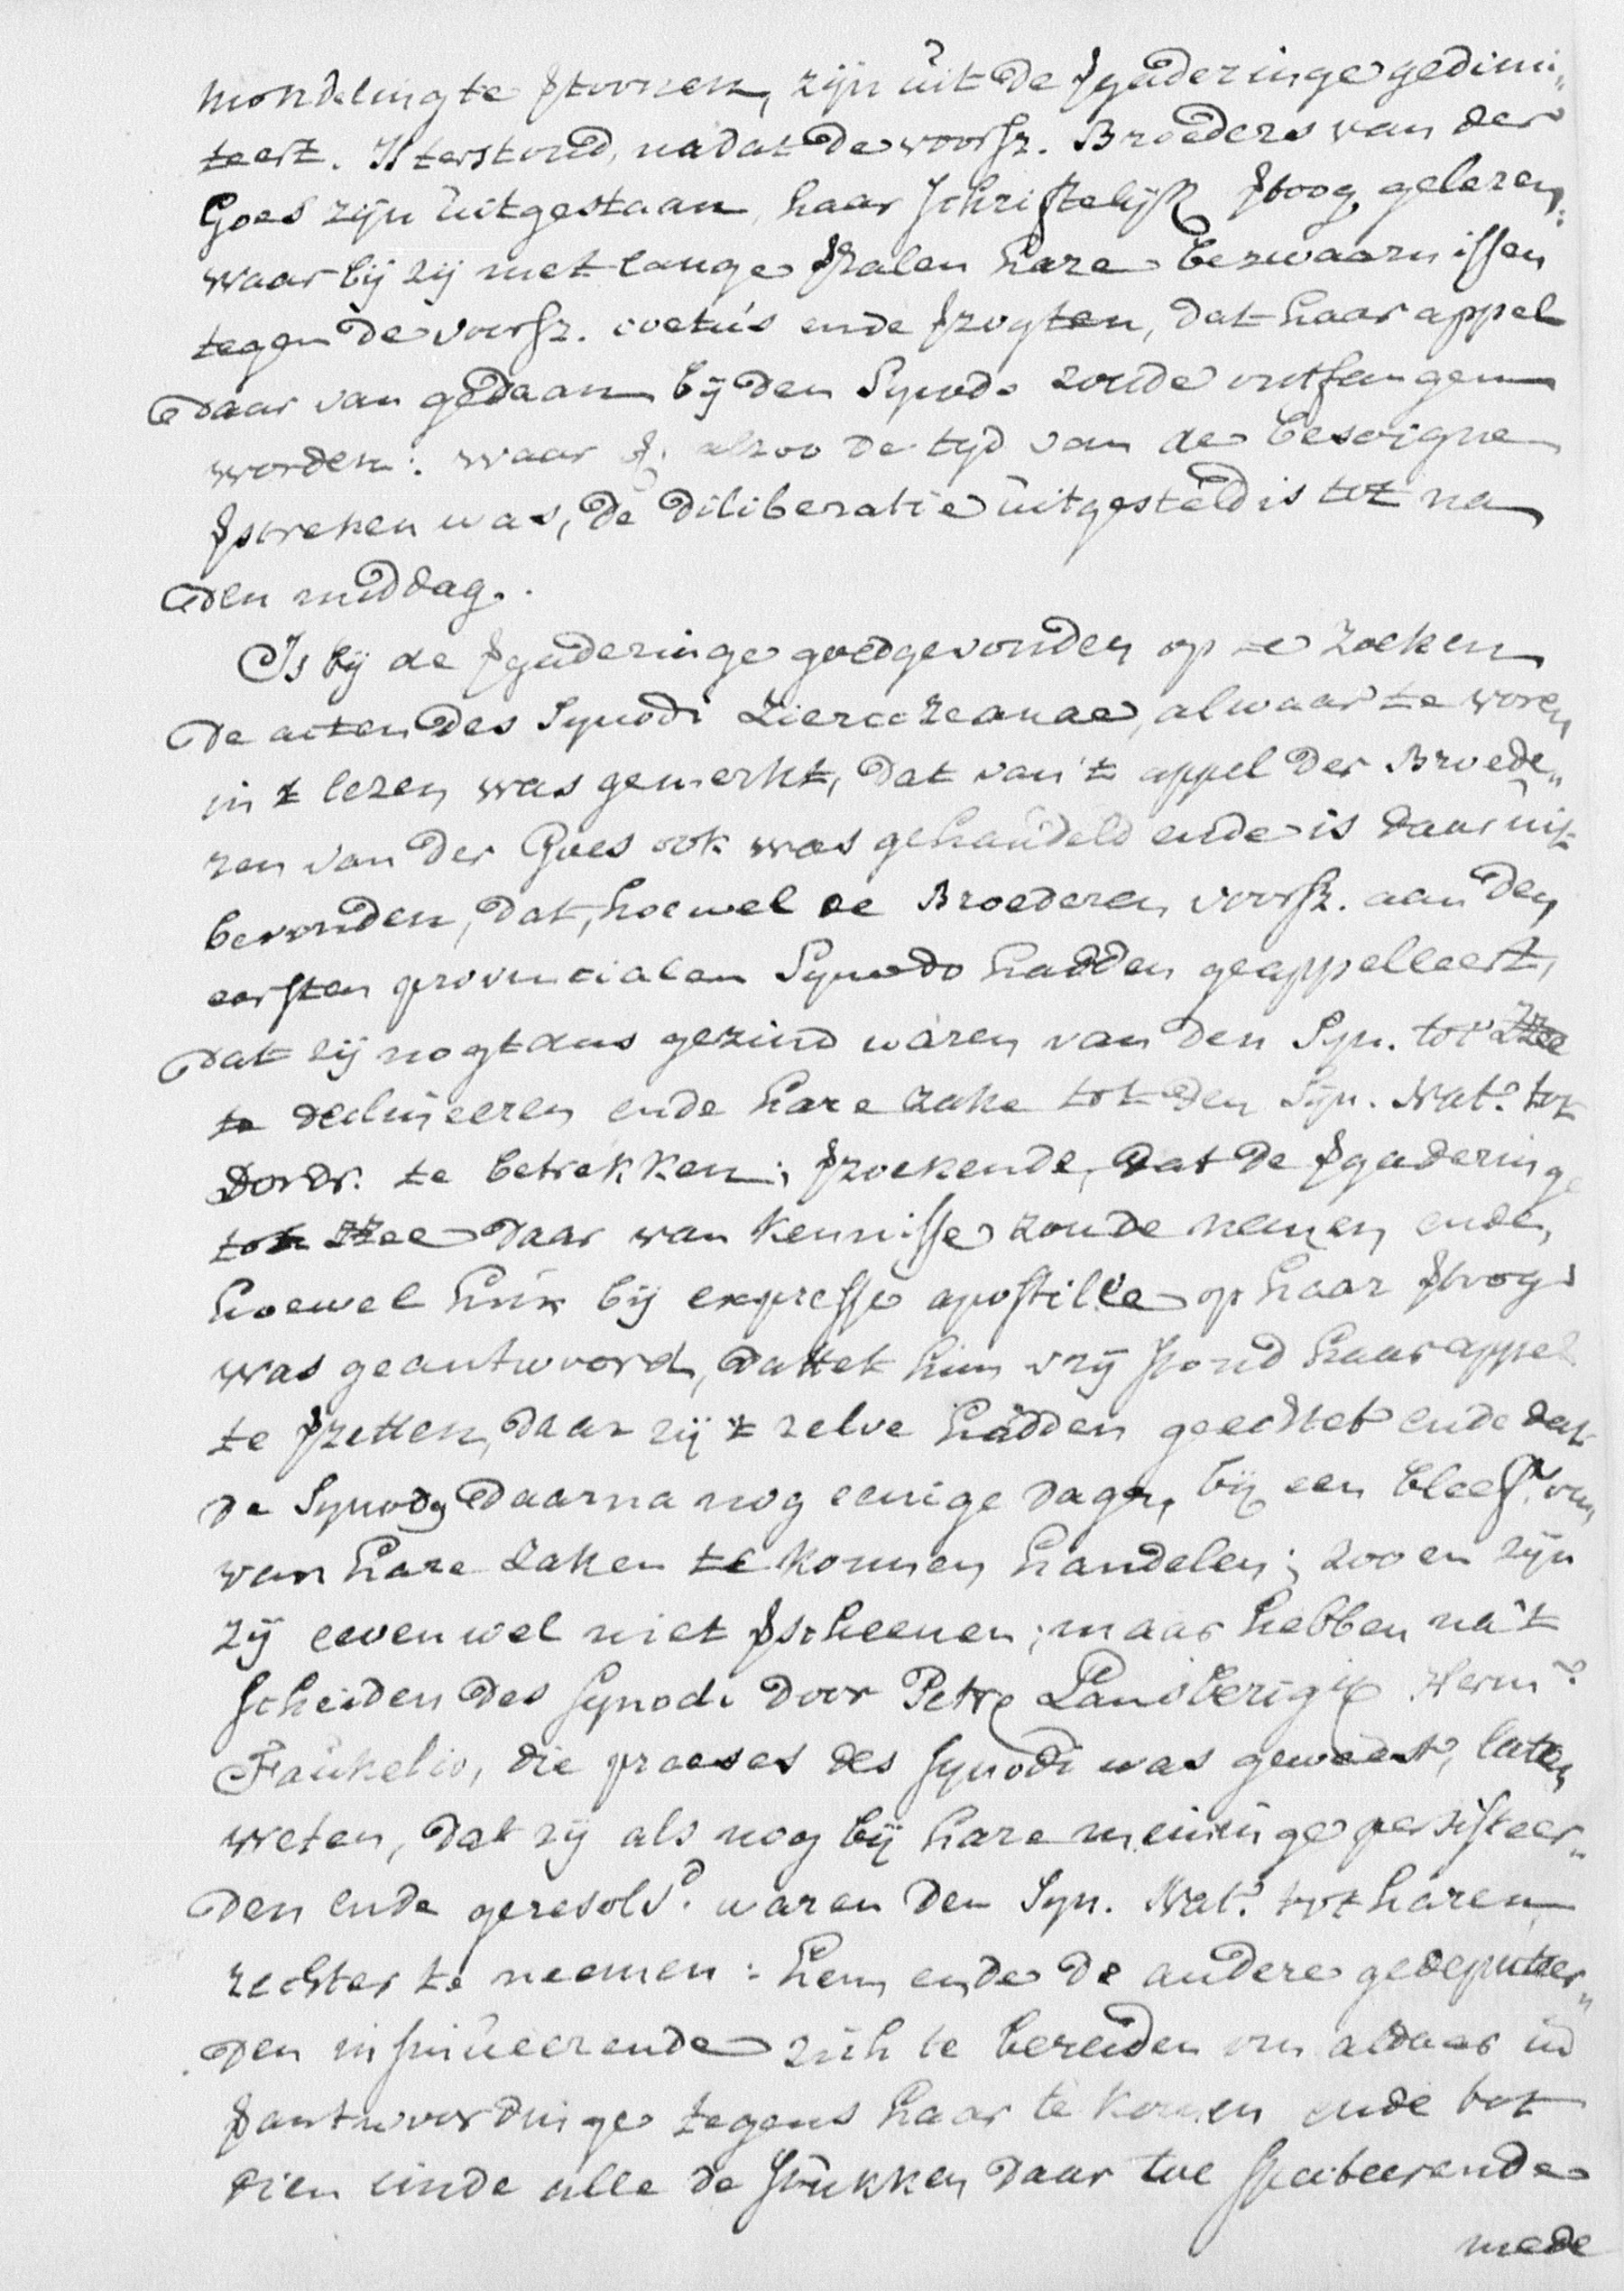 mondeling te ꝟtoonen, zijn uit de ꝟgaderinge gedimi„
teert. Is terstond, nadat de voorsz. Broeders van der
Goes zijn uitgestaan, haar schriftelijk ꝟtoog gelezen:
waar bij zij met lange ꝟhalen hare bezwaarnissen
tegen de voorsz. coetus ende ꝟzogten, dat haar appel
daar van gedaan bij den Synodo zoude ontfangen
worden: waar alzoo de tijd van de besoigne
ꝟstreken was, de diliberatie uitgesteld is tot na
den middag.
Is bij de ꝟgaderinge goedgevonden op te zoeken
de acten des Synodi Zierczeanae, alwaar te voren
in 't lezen was gemerkt, dat van 't appel der Broede„
ren van der Goes ook was gehandeld ende is daar uit
bevonden, dat, hoewel de Broederen voorsz. aan den
eersten provincialen Synodo hadden geappelleert,
dat zij nogtans gezind waren van den Syn. tot Zzee
te declineeren ende hare zake tot den Syn. Natˡ. tot
Dordr. te betrekken; ꝟzoekende, dat de ꝟgaderinge
tot Zzee daar van kennisse zoude nemen ende,
hoewel hun bij expresse apostille op haar ꝟtoog
was geantwoord, dattet hun vrij stond haar appel
te ꝟzetten, daar zij 't zelve hadden geechtet ende dat
de Synodg daarna nog eenige dagen bij een bleef om
van hare zaken te konnen handelen; zoo en zijn
zij eevenwel niet ꝟscheenen; maar hebben na 't
scheiden des Synodi door Petrg Lansbergig Hermº
Faukelio, die praeses des Synodi was geweest, laten
weten, dat zij als nog bij hare meininge persisteer„
den ende geresolvᵈ. waren den Syn. Natˡ. tot haren
rechter te neemen: hem ende de andere gedeputeer„
den insinueerende zich te bereiden om aldaar in
ꝟantwoordinge tegens haar te komen ende tot
dien einde alle de stukken daar toe specteerende
mede